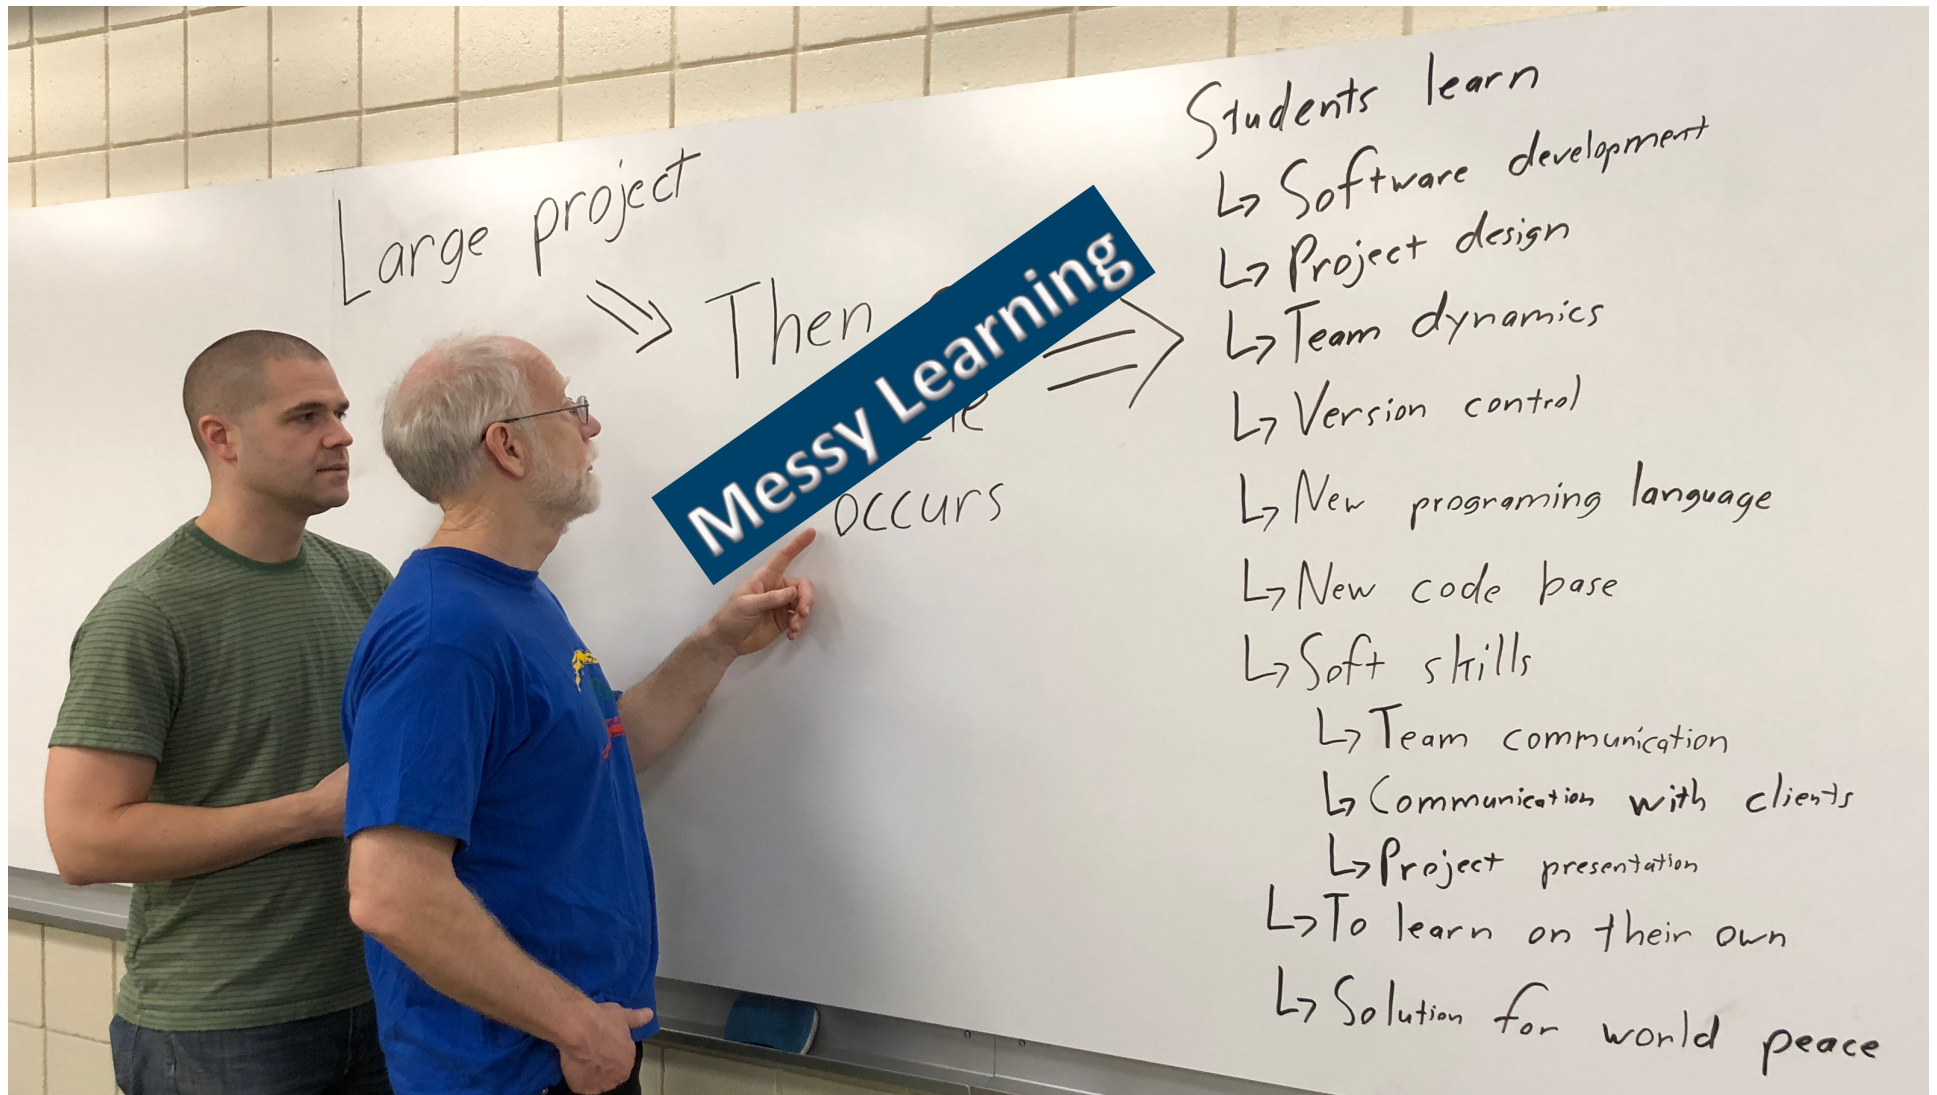 Large project
Then
Messy Learning
occurs
Students learn
Software development
Project design
Team dynamics
Version control
New programing language
New code base
Soft skills
Team communication
Communication with clients
Project presentation
To learn on their own
Solution for world peace